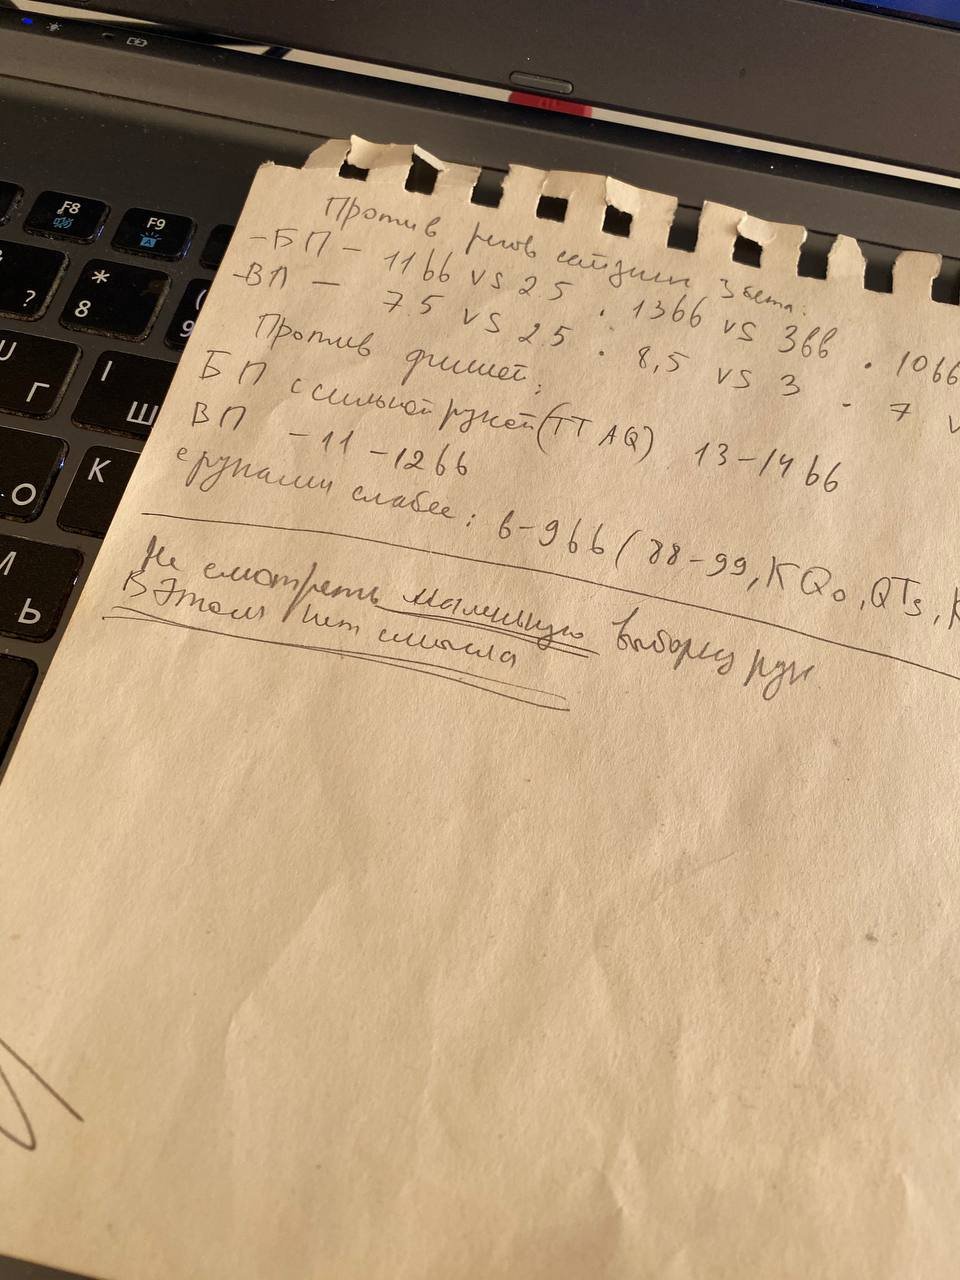 F8
F9
A
?
*
8
(
9
U
Г
I
Ш
О
К
М
Ь
Против регов сайзинг 3бета:
-БП - 11bb vs 2.5 · 13bb vs 3bb · 10bb
-ВП - 7.5 vs 2.5 · 8,5 vs 3 · 7 v
Против фишей:
БП с сильной рукой (TT AQ) 13-14bb
ВП -11 -12bb
с руками слабее: 8-9bb (88-99, KQo, QTs, K
Не смотреть маленькую выборку рук
В этом нет смысла